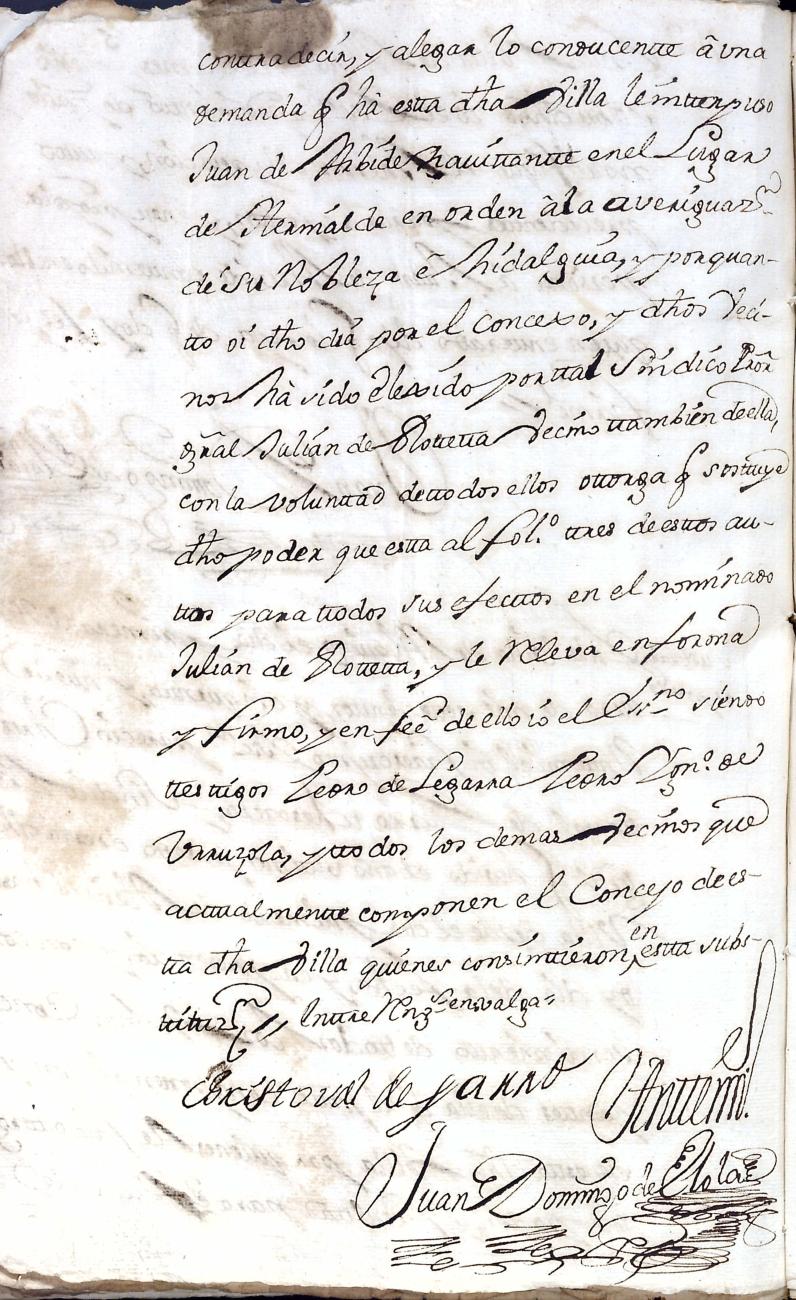 contradecir, y alegar lo conducentte â vna
demanda q̃ hà estta dħa Villa le intterpuso
Juan de Arbide havittantte en el Lugar
de Hernialde en orden â la averiguaz.ⁿ
de su Nobleza ê hidalguia, y porquan-
tto oi dħo dia por el concexo, y dħos Veci-
nos hà sido elexido por ttal Sindico Pror̃
gñral Julian de Olotetta vecino ttambien de ella,
con la volunttad de ttodos ellos ottorga q̃ sosttuye
dħo poder que estta al fol.º ttres de esttos au-
ttos para ttodos sus efecttos en el nominado
Julian de Olotetta, y le Releva en forma
y firmo, y en feê de ello io el Ess.no siendo
ttesttigos Pedro de Legarra Pedro Ygn.º de
Urruzola, y ttodos los demas vecinos que
acttualmentte componen el Concejo de es-
tta dħa Villa quienes consinttieron en estta subs-
titturz.ⁿ // Enttre Reng.s en valga=
Christoval de Yarno Antte mi
Juan Domingo de Elola